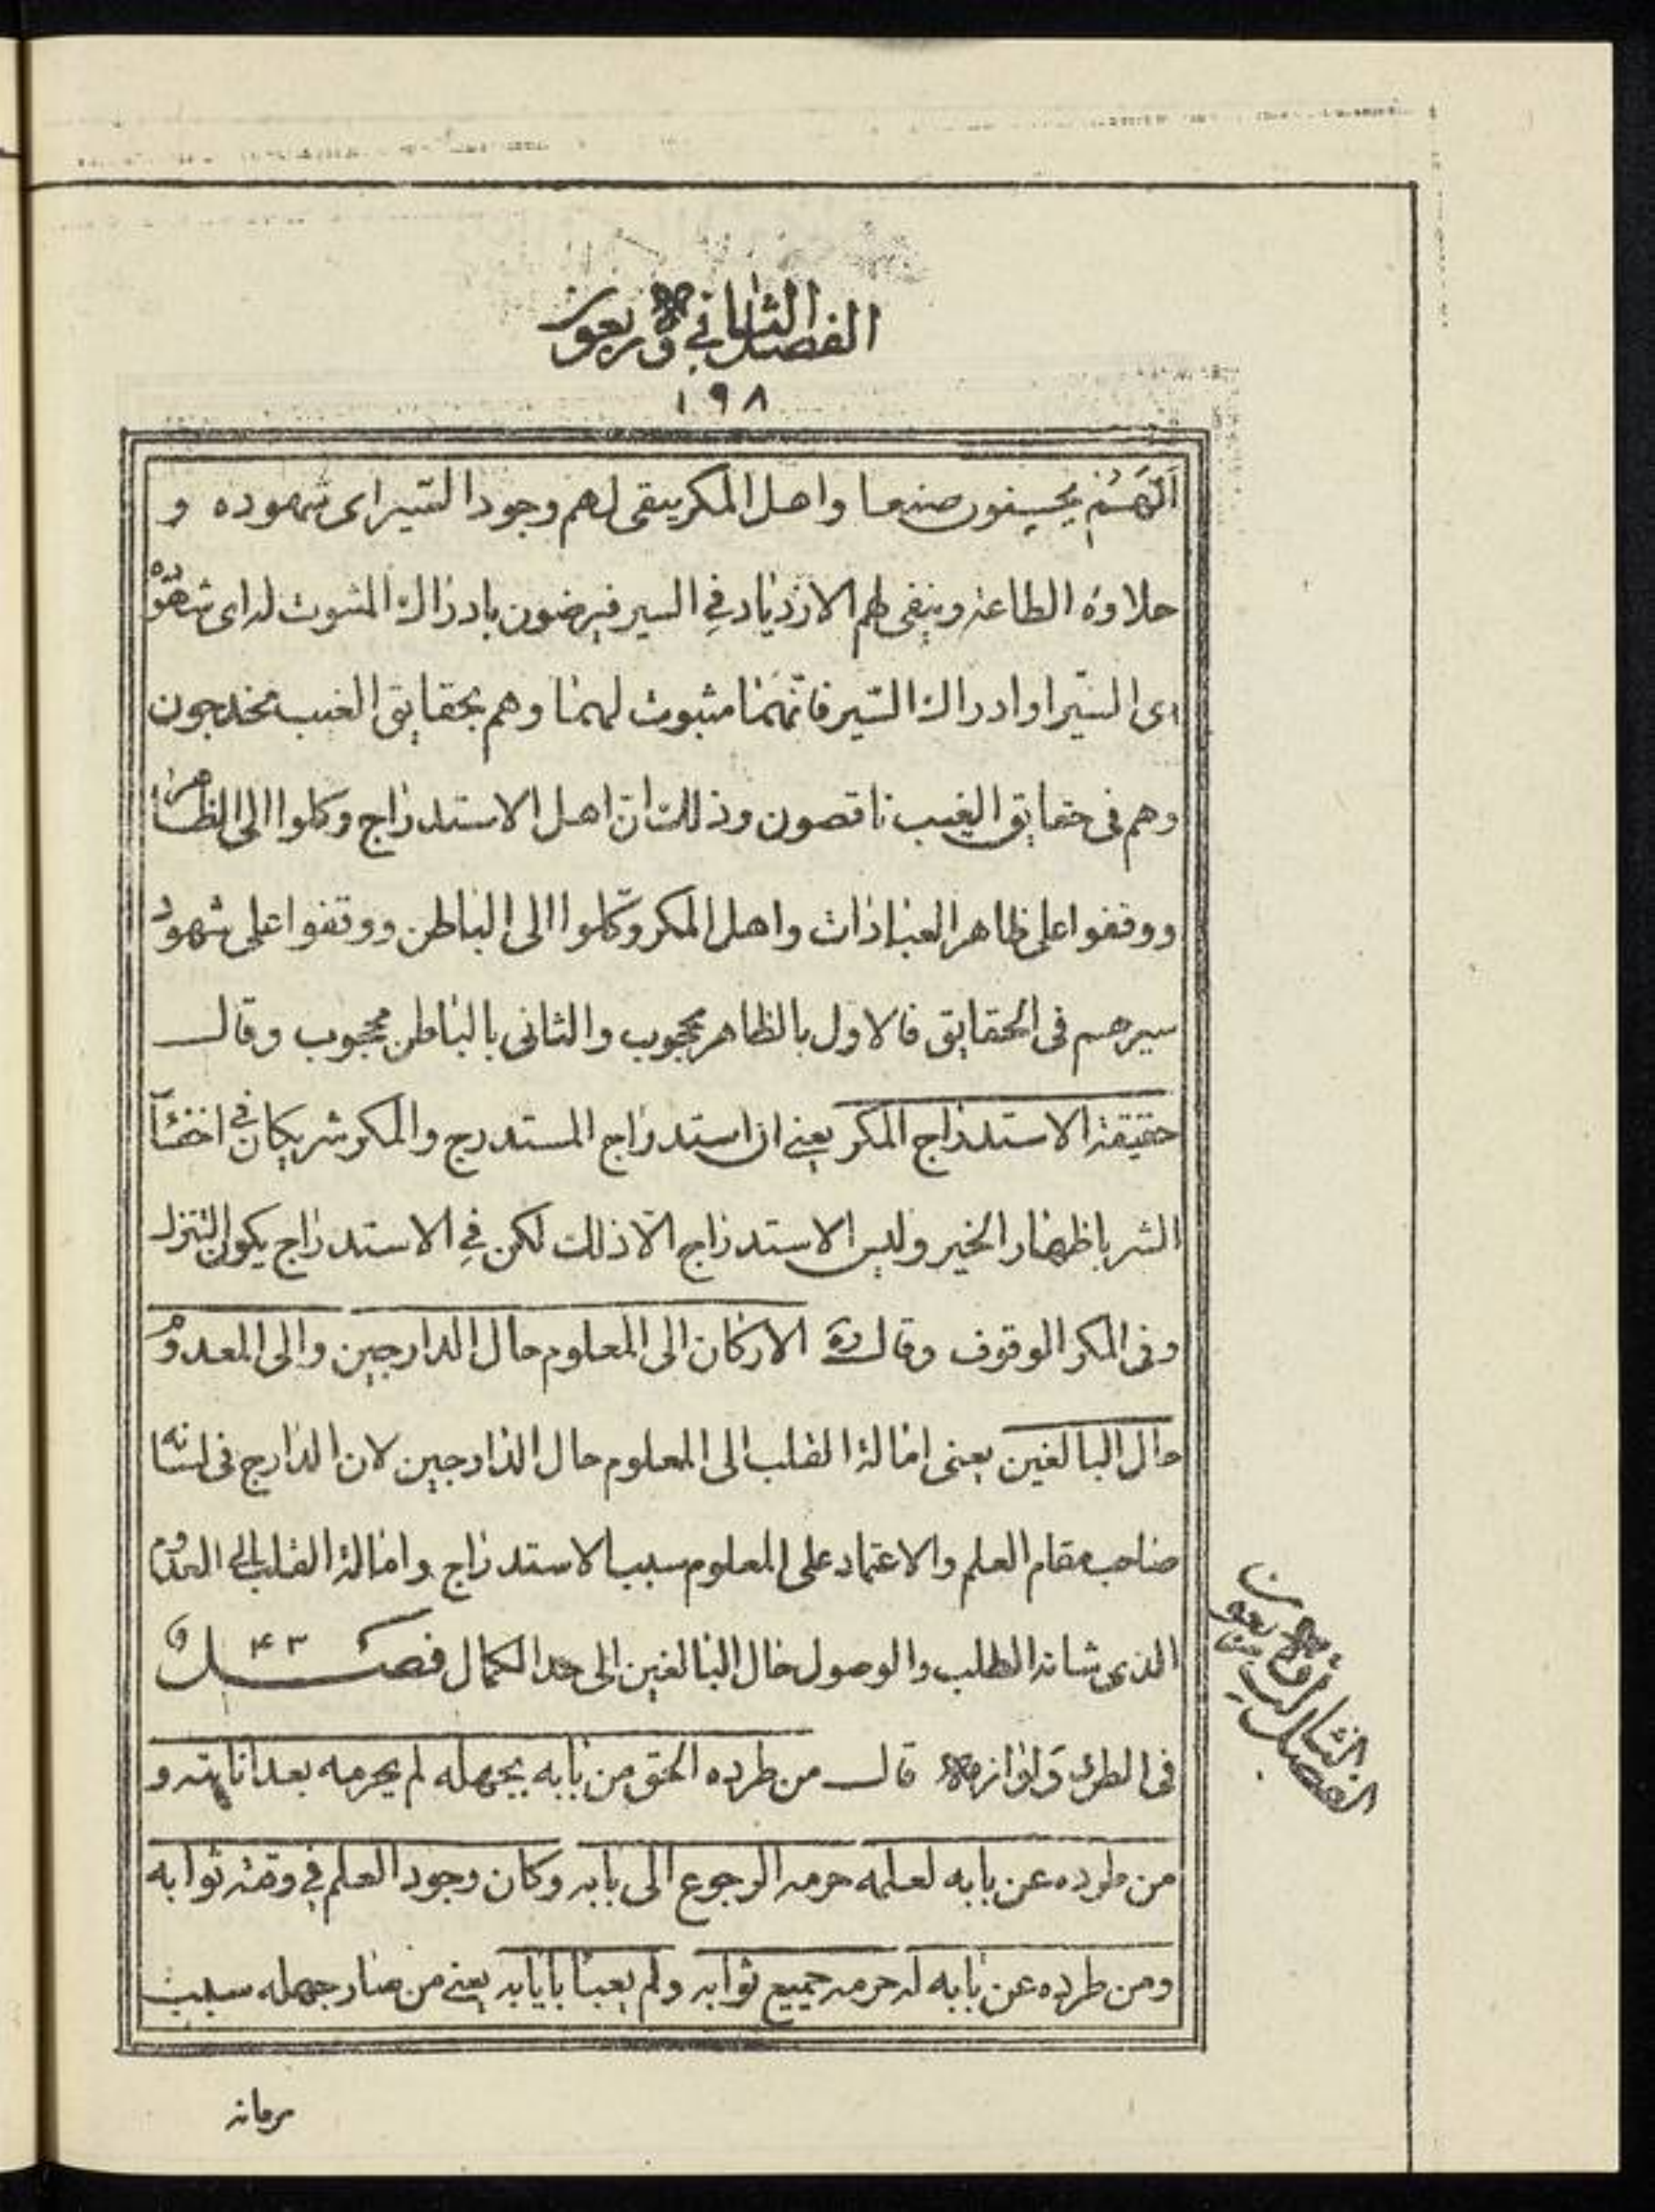 الفصل الثانی و الاربعون
١٩٨
انهم يحسنون صنعا واهل المكر يبقى لهم وجود السّير اى شهوده و
حلاوة الطاعة وينفى لهم الازدياد فى السير فيرضون بادراك المثبوت لداى شهوده
اى السّير او ادراك السّير فانّهما مثبوت لهما وهم بحقايق الغيب مخدجون
وهم فى حقايق الغيب ناقصون وذلك انّ اهل الاستدراج وكلوا الى الظاهر
ووقفوا على ظاهر العبادات واهل المكر وكّلوا الى الباطن ووقفوا على شهود
سيرهم فى الحقايق فالاول بالظاهر محجوب والثانى بالباطن محجوب وقال
حقيقة الاستدراج المكر يعنى ان استدراج المستدرج والمكر شريكان فى اخفاء
الشر باظهار الخير وليس الاستدراج الّا ذلك لكن فى الاستدراج يكون التنزل
وفى المكر الوقوف وقال ره الاركان الى المعلوم حال الدارجين والى المعدوم
حال البالغين يعنى امالة القلب الى المعلوم حال الدارجين لان الدارج فى لسانه
صاحب مقام العلم والاعتماد على المعلوم سبب الاستدراج وامالة القلب الى المعدوم
الذى شانه الطلب والوصول حال البالغين الى حد الكمال فصل ۴۳
فى الطرد ولوازمه قال من طرده الحق من بابه بجهله لم يحرمه بعد انابته و
من طرده عن بابه لعلمه حرمه الرجوع الى بابه وكان وجود العلم فى وقته ثوابه
ومن طرده عن بابه له حرمه جميع ثوابه ولم يعبأ بايابه يعنى من صار جهله سبب
الفصل الثالث و الاربعون
حرمانه